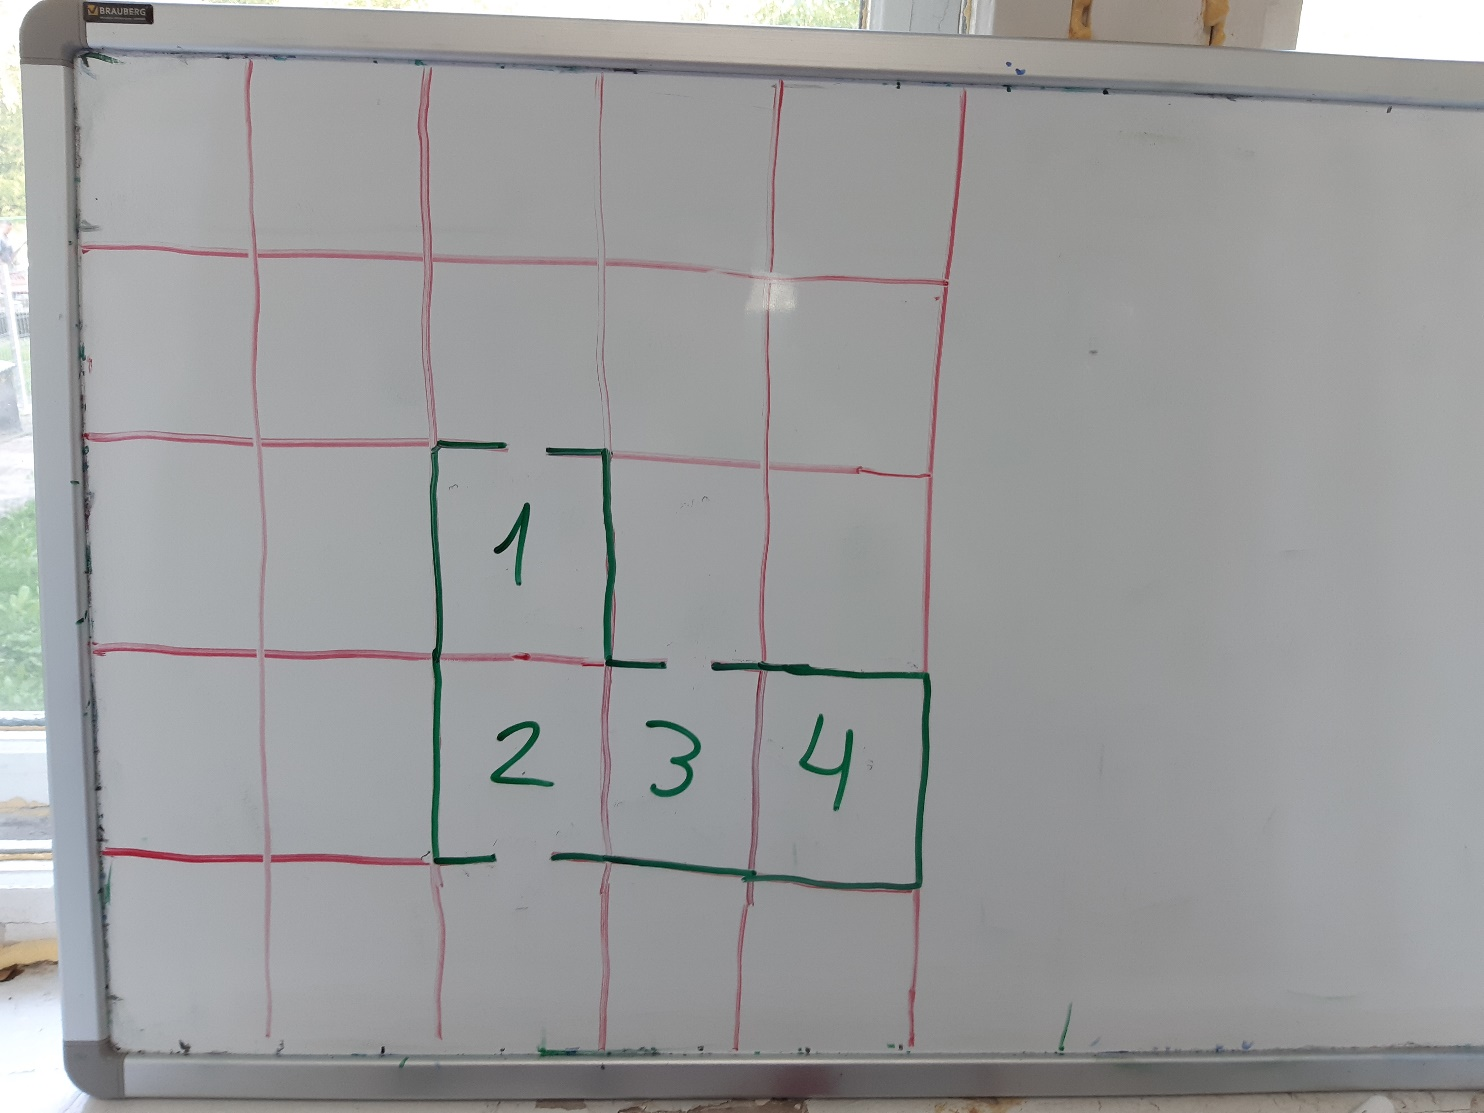 BRAUBERG
1
2 3 4